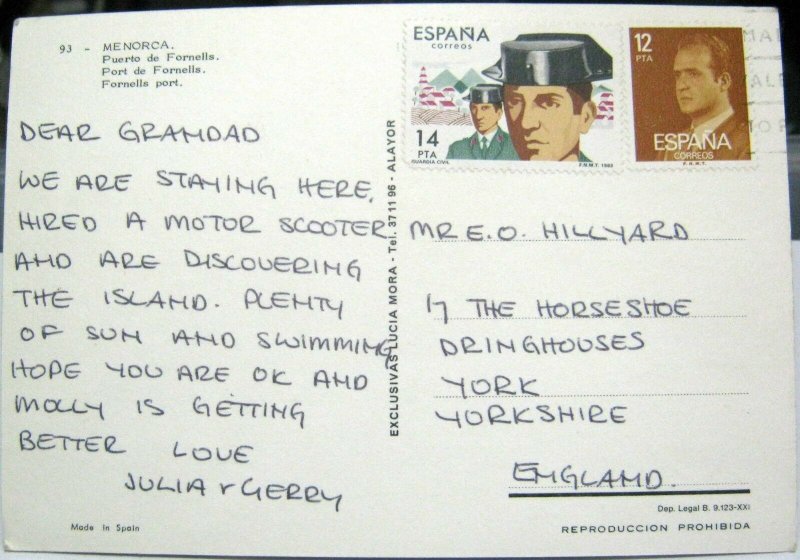 93 - MENORCA.
Puerto de Fornells.
Port de Fornells.
Fornells port.
ESPAÑA
correos
14
PTA
GUARDIA CIVIL
F.N.M.T. 1983
12
PTA
ESPAÑA
CORREOS
F.N.M.T.
DEAR GRANDAD
WE ARE STAYING HERE,
HIRED A MOTOR SCOOTER
AND ARE DISCOVERING
THE ISLAND. PLENTY
OF SUN AND SWIMMING
HOPE YOU ARE OK AND
MOLLY IS GETTING
BETTER LOVE
JULIA & GERRY
EXCLUSIVAS LUCIA MORA - Tel. 37 11 96 - ALAYOR
MR E.O. HILLYARD
17 THE HORSESHOE
DRINGHOUSES
YORK
YORKSHIRE
ENGLAND.
Made in Spain
Dep. Legal B. 9.123-XXI
REPRODUCCION PROHIBIDA